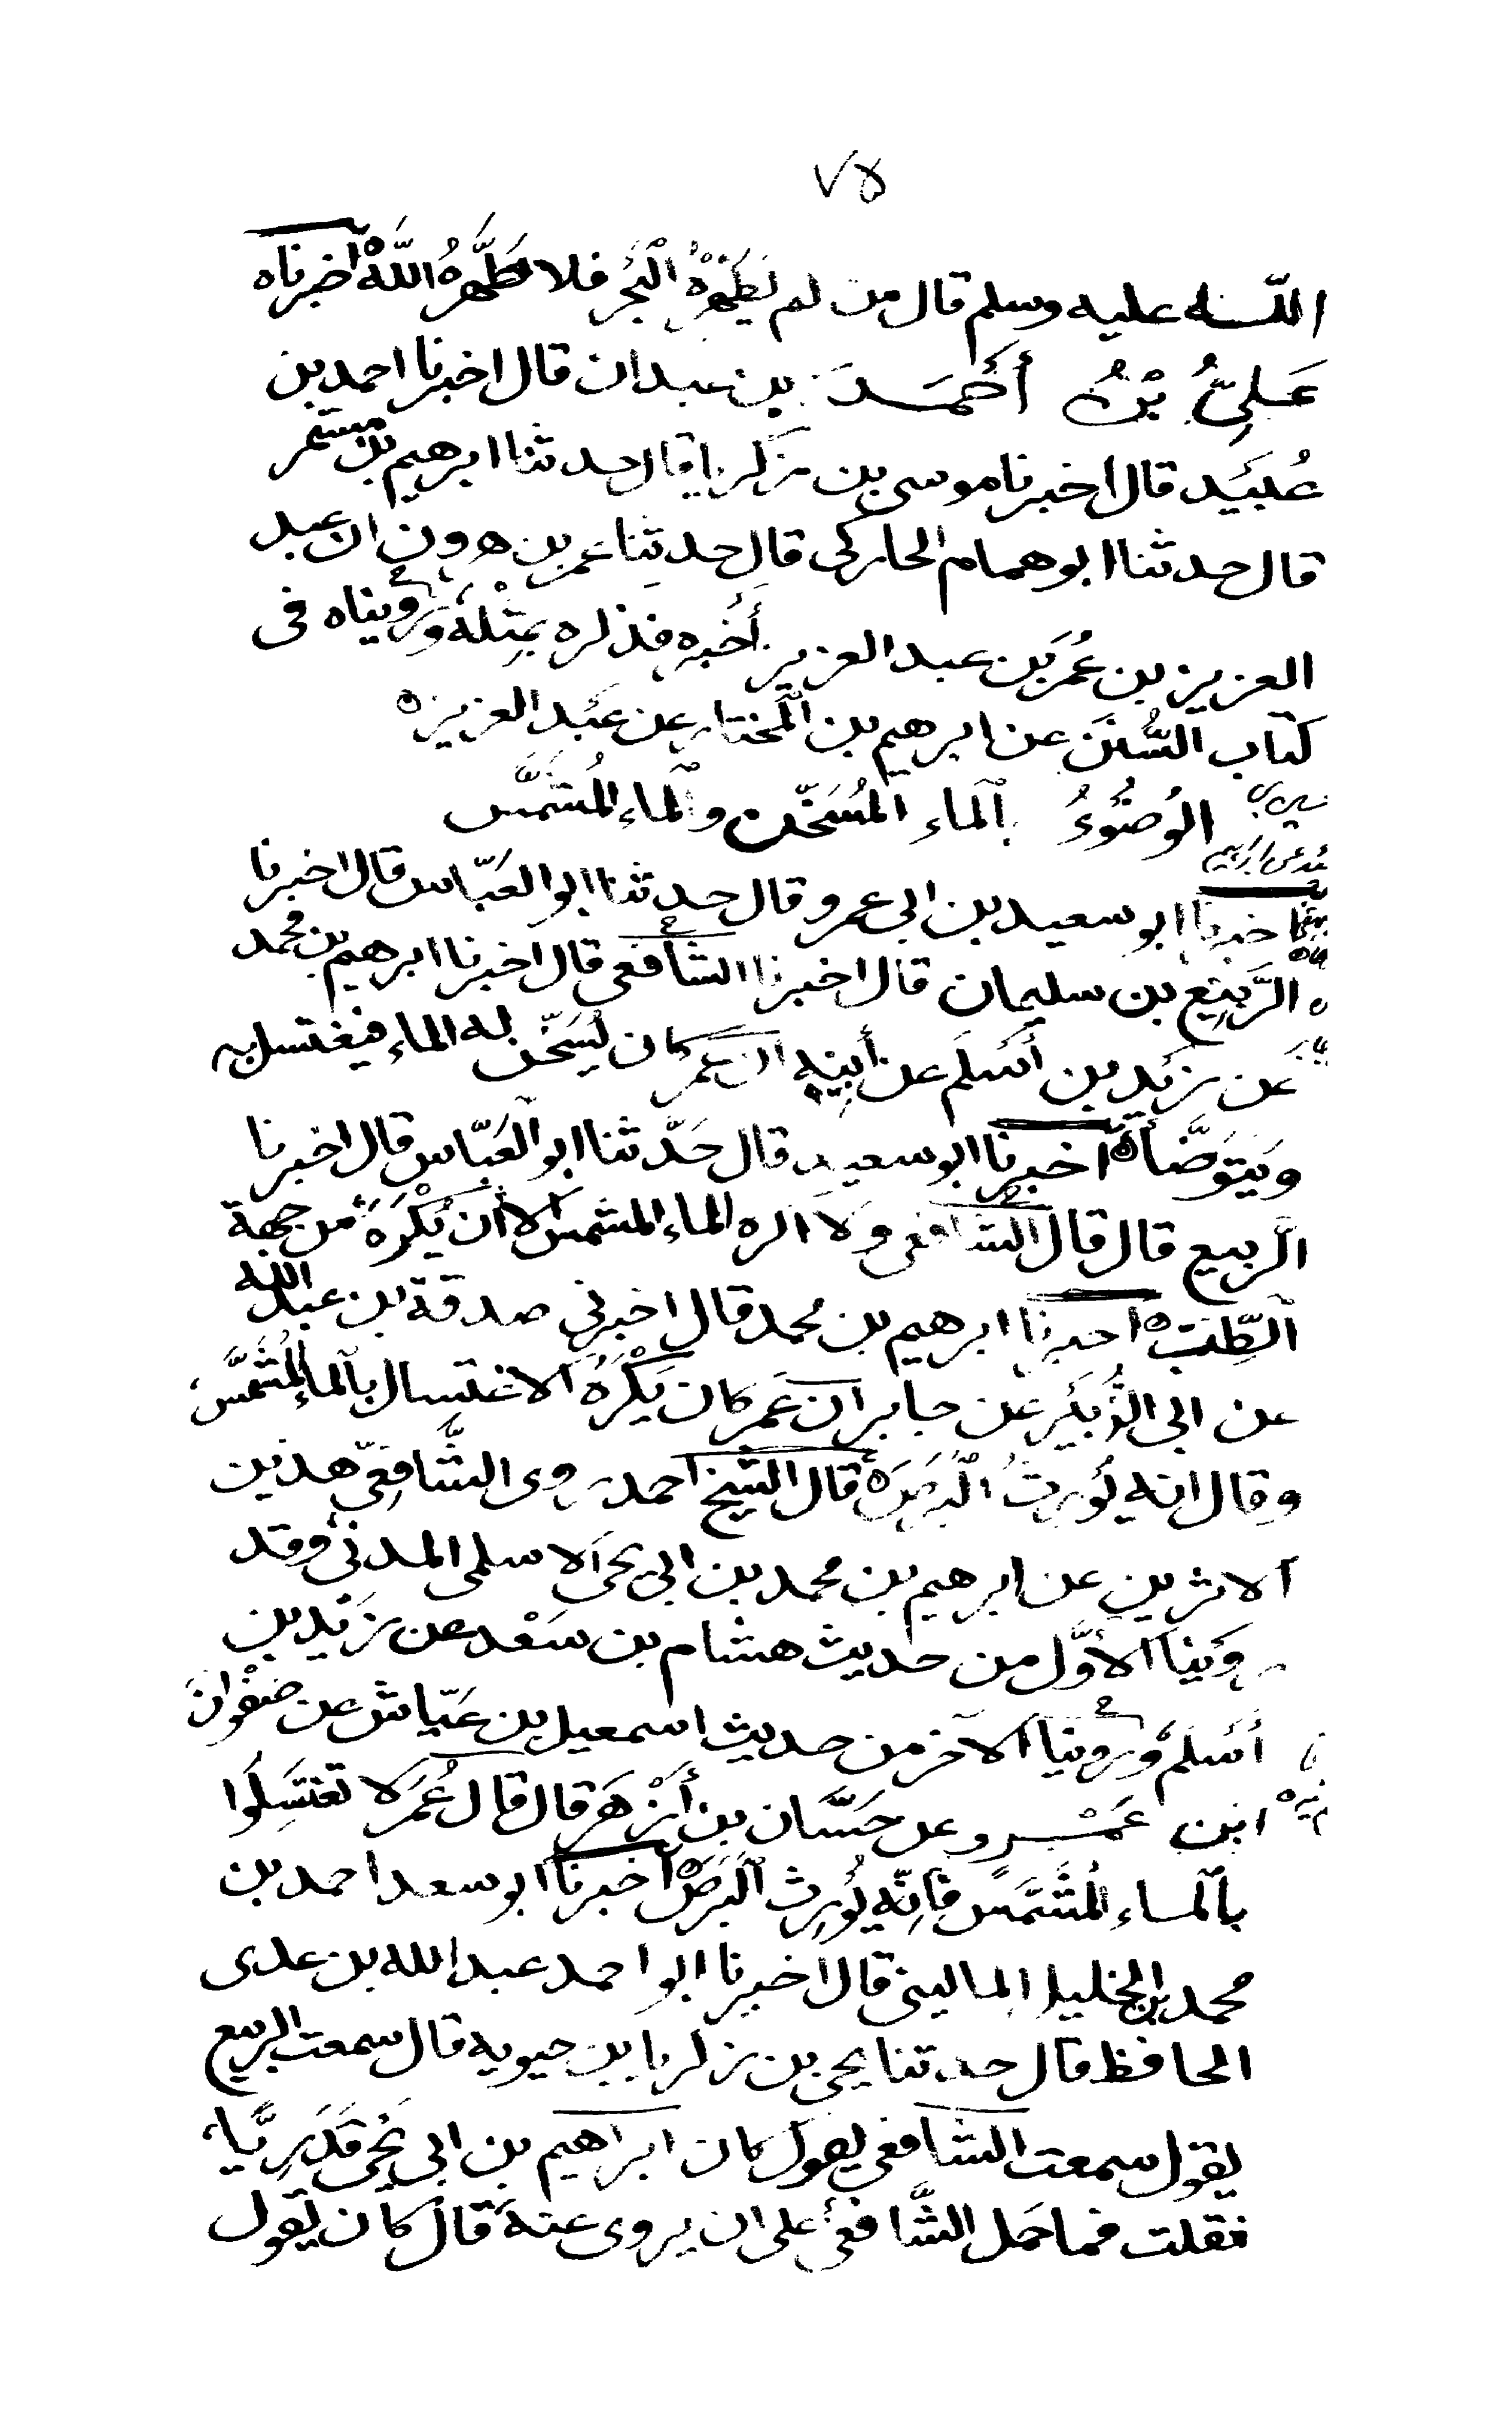 ٧٥
الله عليه وسلم قال من لم يُطَهِّرْهُ الْبَحْرُ فلا طَهَّرَهُ اللَّهُ ه اخبرناه
عَلِيُّ بْنُ أَحْمَدَ بن عبدان قال اخبرنا احمد بن
عُبَيْد قال اخبرنا موسى بن زكريا قال حدثنا ابرهيم بن مستمر
قال حدثنا ابو همام الخاركى قال حدثنا عمر بن هرون ان عبد
العزيز بن عُمَرَ بن عبد العزيز أخبره فذكره بمِثْلِهِ وَرُوِّيناه فى
كتاب السُّنَن عن ابرهيم بن المختار عن عَبْد العزيز ه
الوُضُوءُ بالماءِ المُسَخَّن والماءِ المُشَمَّس
اخبرنا ابو سعيد بن ابى عمرو قال حدثنا ابو العَبّاس قال اخبرنا
الرَّبِيع بن سليمان قال اخبرنا الشافعى قال اخبرنا ابرهيم بن محمد
عَن زَيْد بن أَسْلَمَ عن أَبِيْهِ ان عُمَر كان يُسَخَّن له الماء فيغتسل به
ويَتَوَضَّأ ه اخبرنا ابو سعيد قال حَدّثنا ابو العَبّاس قال اخبرنا
الرّبيع قال قال الشافعى ولا اكره الماء المشمس الا أن يُكْرَهَ من جهة
الطِّبّ ه اخبرنا ابرهيم بن محمد قال اخبرنى صدقة بن عبد الله
عن ابى الزُّبَيْر عَن جابر ان عُمَر كان يَكْرَهُ الاغتسال بالماءِ المُشَمَّس
وقال انه يُورِثُ الْبَرَصَ ه قال الشيخ احمد روى الشَّافِعِىّ هذين
الاثرين عن ابرهيم بن محمد بن ابى يحيى الاسلمى المدنىّ وقد
رَوَيْنا الأوَّل من حديث هشام بن سَعْد عن زَيْد بن
أَسْلَم ورُوِّينا الآخر من حديث اسمعيل بن عَيّاش عن صَفْوانَ
ابن عَمْرو عن حَسَّان بن أَزْهَر قال قال عُمَر لا تَغْتَسِلُوا
بالماء المُشَمَّس فإنّه يُورِث البَرَصَ ه اخبرنا ابو سعد احمد بن
محمد بن الخليل المالينى قال اخبرنا ابو احمد عبد الله بن عدى
الحافظ قال حدثنا يحيى بن زكريا بن حيويه قال سمعت الربيع
يقول سمعت الشافعى يقول كان ابراهيم بن ابى يَحْيَى قَدَرِيًّا
فقلت فما حَمَل الشَّافعىّ على ان يروى عنه قال كان يَقول